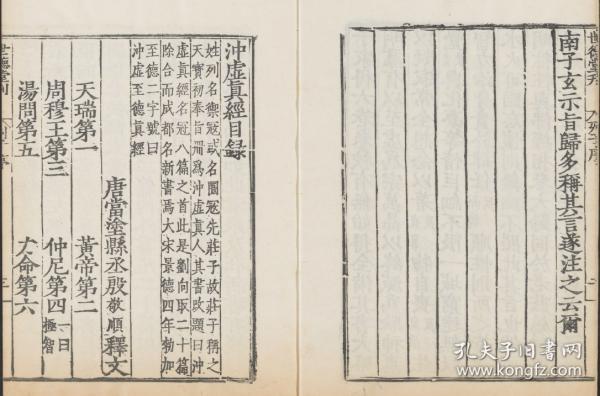 南子玄示旨歸多稱其言遂注之云爾
世德堂刊
沖虛真經目録
姓列名禦寇或名圄寇先莊子故莊子稱之
天寶初奉旨冊爲沖虛真人其書改題曰沖
虛真經名冠八篇之首此是劉向取二十篇
除合而成都名新書焉大宋景德四年勑加
至德二字號曰
沖虛至德真經
唐當塗縣丞殷敬順釋文
天瑞第一
黃帝第二
周穆王第三
仲尼第四一曰極智
湯問第五
力命第六
世德堂刊
孔夫子旧书网
www.kongfz.com